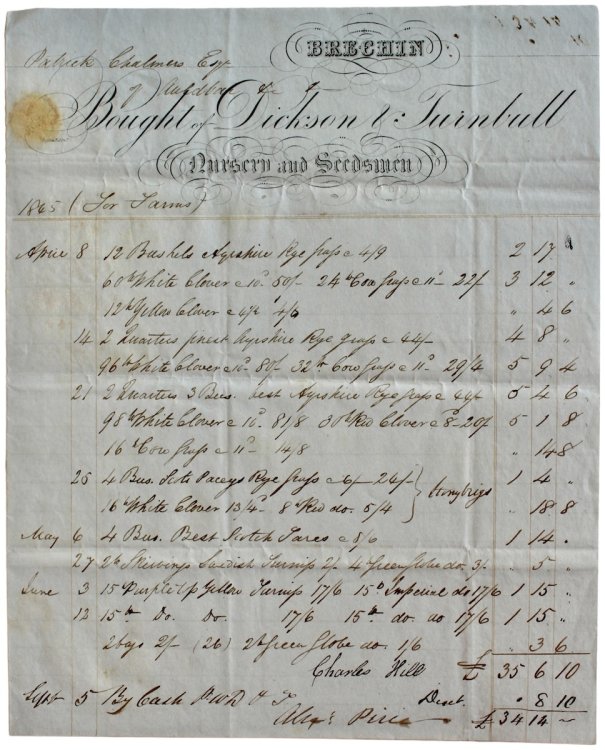 BRECHIN
1 34 14
Patrick Chalmers Esqr
of Auldbar &c
Bought of Dickson & Turnbull
Nursery and Seedsmen
1865 (For Farms)
April 8 12 Bushels Ayrshire Rye Grass @ 4/9 2 17 "
60 lb White Clover @ 10d 50/- 24 lb Cow Grass @ 11d 22/- 3 12 "
12 lb Yellow Clover @ 4½d 4/6 " 4 6
14 2 Quarters finest Ayrshire Rye grass @ 44/- 4 8 "
96 lb White Clover @ 10d 80/- 32 lb Cow Grass @ 11d 29/4 5 9 4
21 2 Quarters 3 Bus. best Ayrshire Rye Grass @ 44/- 5 4 6
98 lb White Clover @ 10d 81/8 30 lb Red Clover @ 8d 20/- 5 1 8
16 lb Cow Grass @ 11d 14/8 " 14 8
25 4 Bus. Scots Paceys Rye Grass @ 6/- 24/- 1 4 "
16 lb White Clover 13/4 8 lb Red do. 5/4 " 18 8
May 6 4 Bus. Best Scotch Tares @ 8/6 1 14 "
27 2 lb Skirvings Swedish Turnip 2/- 4 Green Globe do 3/- " 5 "
June 3 15 Purple Top Yellow Turnip 17/6 15 lb Imperial do 17/6 1 15 "
12 15 lb Do. Do. 17/6 15 lb do. do 17/6 1 15 "
2 bags 2/- (26) 2 lb Green Globe do. 1/6 " 3 6
Charles Hill £ 35 6 10
Sept 5 By Cash Disct. " 8 10
Alexr Pirie £ 34 14 ~